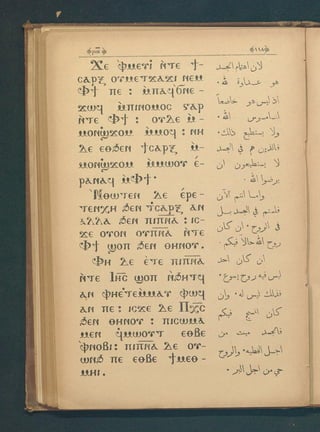 Ϫⲉ ⲫⲙⲉⲩⲓ ⲛ̀ⲧⲉ ϯ-
ⲥⲁⲣⲝ ⲟⲩⲙⲉⲧϫⲁϫⲓ ⲛⲉⲙ
Ⲫϯ ⲡⲉ : ⲙ̀ⲡⲁϥϭⲛⲉ-
ϫⲱϥ ⲙ̀ⲡⲓⲛⲟⲙⲟⲥ ⲅⲁⲣ
ⲛ̀ⲧⲉ Ⲫϯ : ⲟⲩⲇⲉ ⲙ̀-
ⲙⲟⲛϣϫⲟⲙ ⲙ̀ⲙⲟϥ : ⲛⲏ
ⲇⲉ ⲉⲑϧⲉⲛ ϯⲥⲁⲣⲝ ⲙ̀-
ⲙⲟⲛϣϫⲟⲙ ⲙ̀ⲙⲱⲟⲩ ⲉ̀-
ⲣⲁⲛⲁϥ ⲙ̀Ⲫϯ·
Ⲛ̀ⲑⲱⲧⲉⲛ ⲇⲉ ⲉ̀ⲣⲉ-
ⲧⲉⲛⲭⲏ ϧⲉⲛ ϯⲥⲁⲣⲝ ⲁⲛ
ⲁⲗⲗⲁ ϧⲉⲛ ⲡⲓⲡ̅ⲛ̅ⲁ̅ : ⲓⲥ-
ϫⲉ ⲟⲩⲟⲛ ⲟⲩⲡ̅ⲛ̅ⲁ̅ ⲛ̀ⲧⲉ
Ⲫϯ ϣⲟⲡ ϧⲉⲛ ⲑⲏⲛⲟⲩ.
Ⲫⲏ ⲇⲉ ⲉ̀ⲧⲉ ⲡⲓⲡ̅ⲛ̅ⲁ̅
ⲛ̀ⲧⲉ Ⲓⲏ̅ⲥ̅ ϣⲟⲡ ⲛ̀ϧⲏⲧϥ
ⲁⲛ ⲫⲏⲉ̀ⲧⲉⲙⲙⲁⲩ ⲫⲱϥ
ⲁⲛ ⲡⲉ : ⲓⲥϫⲉ ⲇⲉ Ⲡⲭ̅ⲥ̅
ϧⲉⲛ ⲑⲏⲛⲟⲩ : ⲡⲓⲥⲱⲙⲁ
ⲙⲉⲛ ϥ̀ⲙⲱⲟⲩⲧ ⲉⲑⲃⲉ
ⲫⲛⲟⲃⲓ : ⲡⲓⲡ̅ⲛ̅ⲁ̅ ⲇⲉ ⲟⲩ-
ⲱⲛϧ ⲡⲉ ⲉⲑⲃⲉ ϯⲙⲉⲑ-
ⲙⲏⲓ.
١١٨
لان اهتمام الجسد
هو عداوة لله.
اذ ليس هو خاضعا
لناموس الله.
ولا يستطيع ذلك.
فالذين هم في الجسد
لا يستطيعون ان
يرضوا الله.
واما انتم الآن
فلستم في الجسد بل
في الروح. ان كان
روح الله حالا فيكم.
ان كان احد
ليس فيه روح يسوع.
فذلك ليس له. وان
كان المسيح فيكم
فالجسد ميت من
اجل الخطيه. والروح
حي من اجل البر.